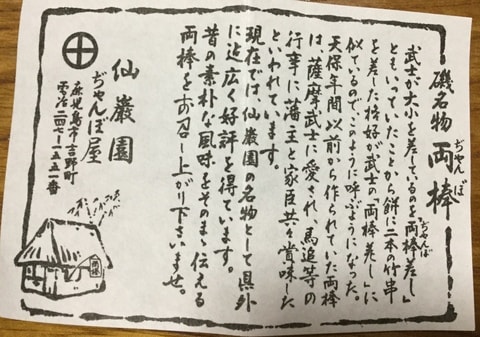 磯名物 両棒
ぢゃんぼ
武士が大小を差しているのを「両棒差し」
ぢゃんぼ
ともいっていたことから餅に二本の竹串
を差した格好が武士の「両棒差し」に
似ているのでこのように呼ぶようになった。
天保年間以前から作られていた両棒
は、薩摩武士に愛され、馬追等の
行事に藩主と家臣共々賞味した
といわれています。
現在では、仙巌園の名物として県外
に迄広く好評を得ています。
昔の素朴な風味をそのまゝ伝える
両棒をお召し上がり下さいませ。
仙巌園
ぢゃんぼ屋
鹿児島市吉野町
電冶二四七-一五五一番